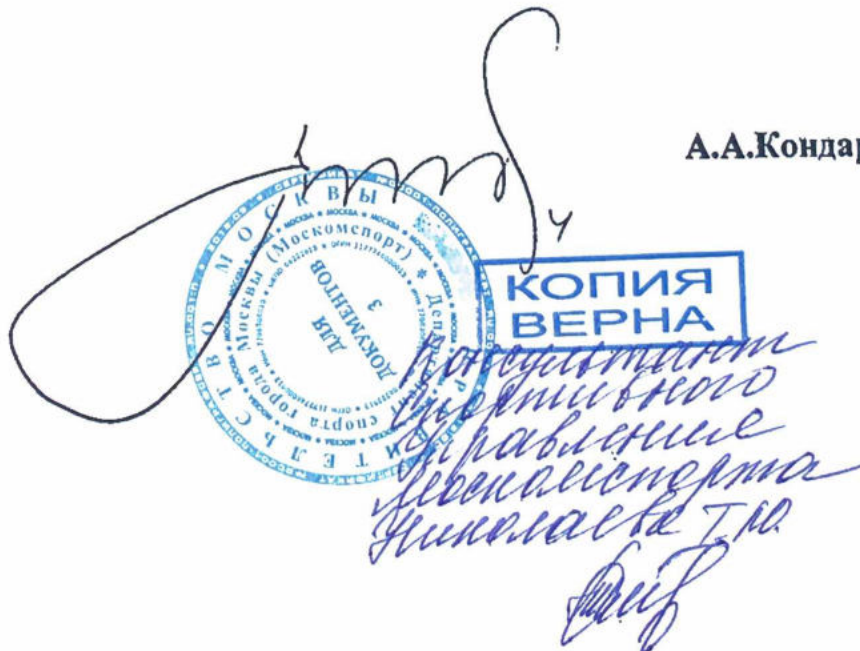 А.А.Кондар
ПРАВИТЕЛЬСТВО МОСКВЫ
Департамент спорта города Москвы (Москомспорт)
ДЛЯ
ДОКУМЕНТОВ
3
КОПИЯ
ВЕРНА
Консультант
спортивного
управления
Москомспорта
Николаева Т.Ю.